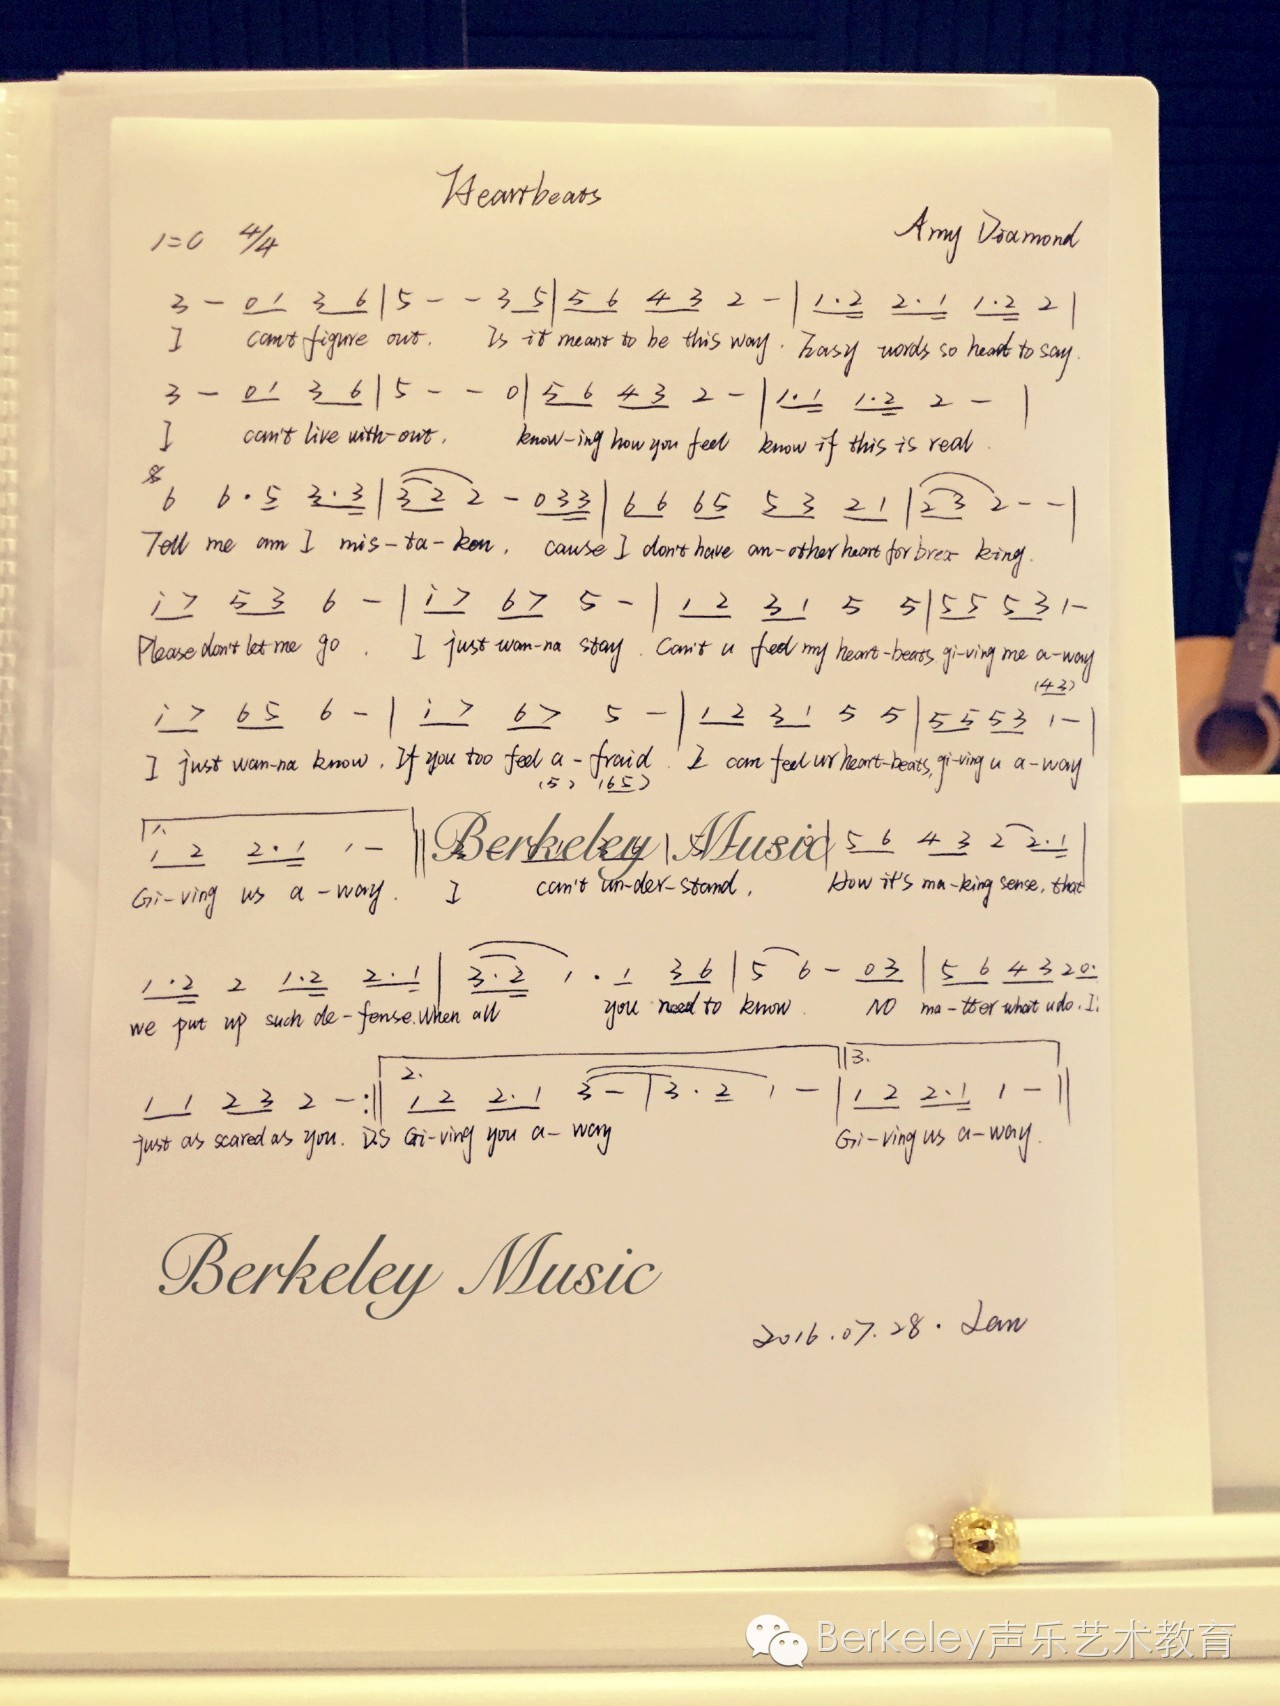 Heartbeats
1=C 4/4
Amy Diamond
3 - 0 1 3 6 | 5 - - 3 5 | 5 6 4 3 2 - | 1·2 2·1 1·2 2 |
I can't figure out. Is it meant to be this way. Easy words so heart to say.
3 - 0 1 3 6 | 5 - - 0 | 5 6 4 3 2 - | 1·1 1·2 2 - |
I can't live with-out. know-ing how you feel know if this is real.
6 6·5 3·3 | 3 2 2 - 0 3 3 | 6 6 6 5 5 3 2 1 | 2 3 2 - - |
Tell me am I mis-ta-ken. cause I don't have an-other heart for brea king.
i 7 5 3 6 - | i 7 6 7 5 - | 1 2 3 1 5 5 | 5 5 5 3 1 -
Please don't let me go. I just wan-na stay. Can't u feel my heart-beats gi-ving me a-way
(4 3)
i 7 6 5 6 - | i 7 6 7 5 - | 1 2 3 1 5 5 | 5 5 5 3 1 - |
I just wan-na know. If you too feel a-fraid. I can feel ur heart-beats, gi-ving u a-way
(5) (6 5)
1.
1 2 2·1 1 - || | 5 6 4 3 2 2·1 |
Berkeley Music
Gi-ving us a-way. I can't un-der-stand, How it's ma-king sense, that
1·2 2 1·2 2·1 | 3·2 1·1 3 6 | 5 6 - 0 3 | 5 6 4 3 2 0·
we put up such de-fense. When all you need to know. NO ma-tter what u do. I'
1 1 2 3 2 - :|| 2. 1 2 2·1 3 - | 3·2 1 - || 3. 1 2 2·1 1 - ||
just as scared as you. DS Gi-ving you a-way Gi-ving us a-way.
Berkeley Music
2016.07.28.
Berkeley声乐艺术教育